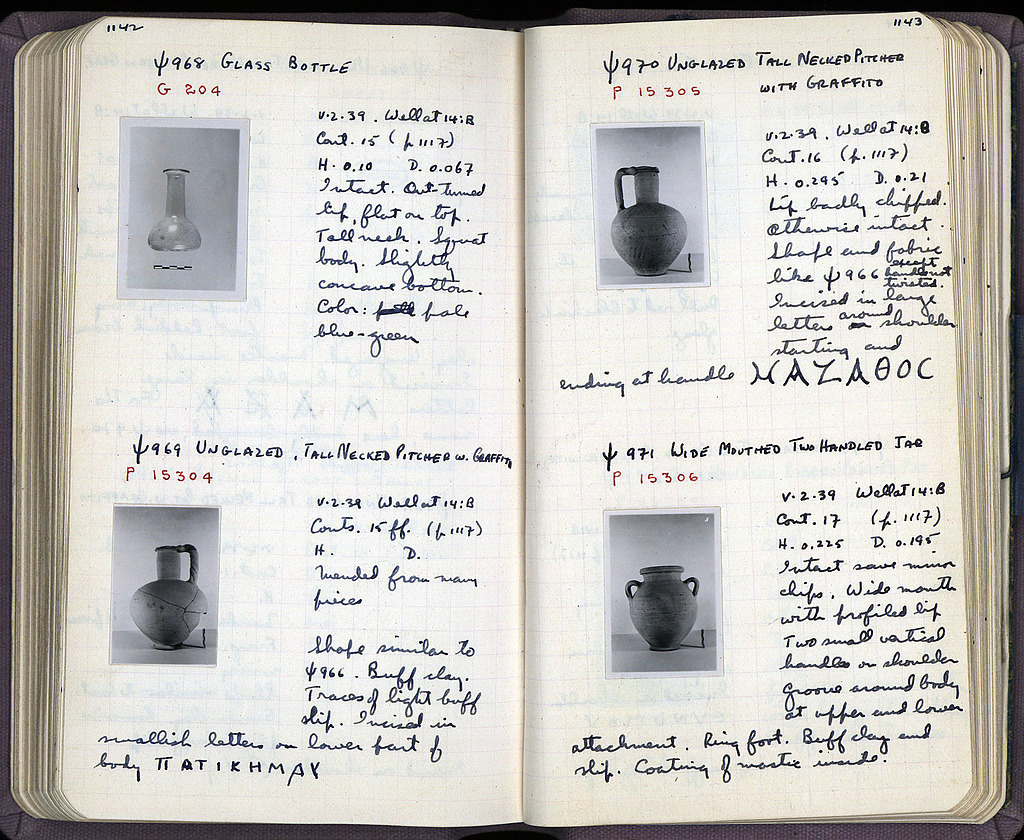 1142
ψ968 GLASS BOTTLE
G 204
v.2.39. Well at 14:B
Cont. 15 (p. 1117)
H. 0.10 D. 0.067
Intact. Out-turned
lip, flat on top.
Tall neck. Squat
body. Slightly
concave bottom.
Color: pale
blue-green
ψ969 UNGLAZED, TALL NECKED PITCHER W. GRAFFITO
P 15304
v.2.39 Well at 14:B
Conts. 15 ff. (p. 1117)
H. D.
Mended from many
pieces
Shape similar to
ψ966. Buff clay.
Traces of light buff
slip. Incised in
smallish letters on lower part of
body ΠΑΤΙΚΗΜΑΥ
1143
ψ970 UNGLAZED TALL NECKED PITCHER
WITH GRAFFITO
P 15305
v.2.39. Well at 14:B
Cont. 16 (p. 1117)
H. 0.295 D. 0.21
Lip badly chipped.
Otherwise intact.
Shape and fabric
like ψ966 except handle not twisted.
Incised in large
letters around shoulder
starting and
ending at handle ΝΑΖΑΘΟC
ψ971 WIDE MOUTHED TWO HANDLED JAR
P 15306
v.2.39 Well at 14:B
Cont. 17 (p. 1117)
H. 0.225 D. 0.195
Intact save minor
chips. Wide mouth
with profiled lip
Two small vertical
handles on shoulder
groove around body
at upper and lower
attachment. Ring foot. Buff clay and
slip. Coating of mastic inside.